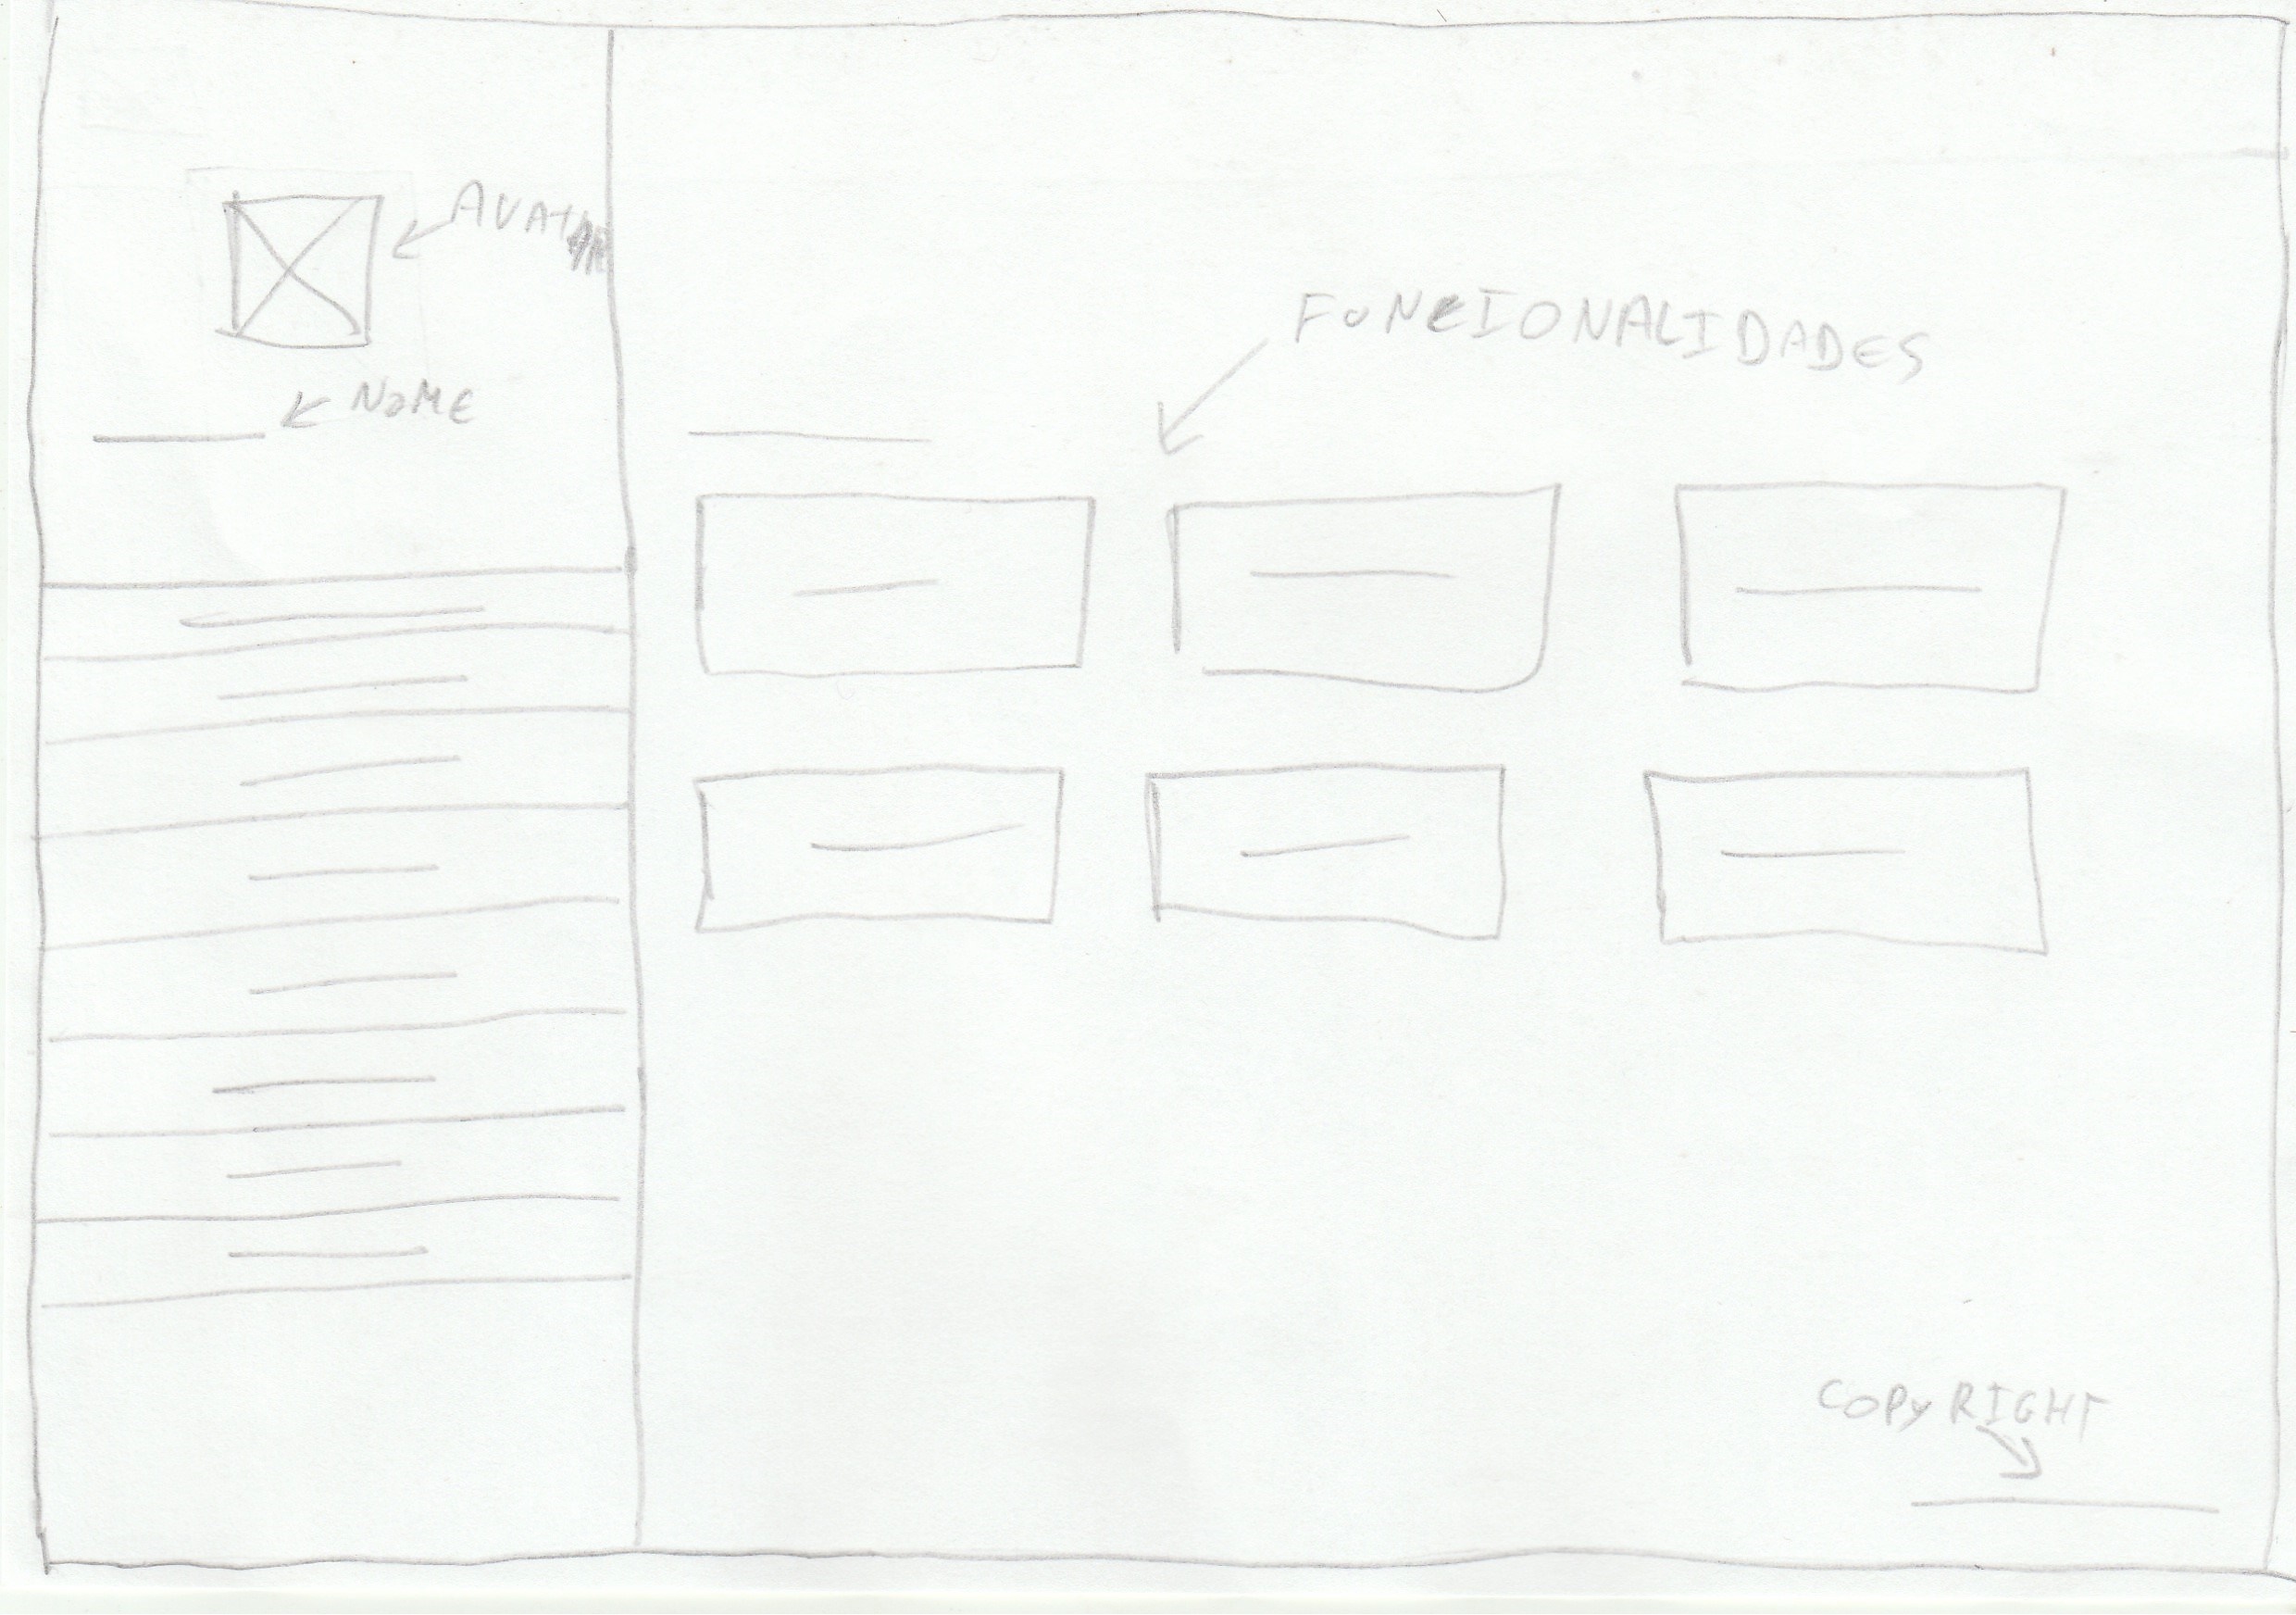 AVATAR
NOME
FUNCIONALIDADES
COPYRIGHT